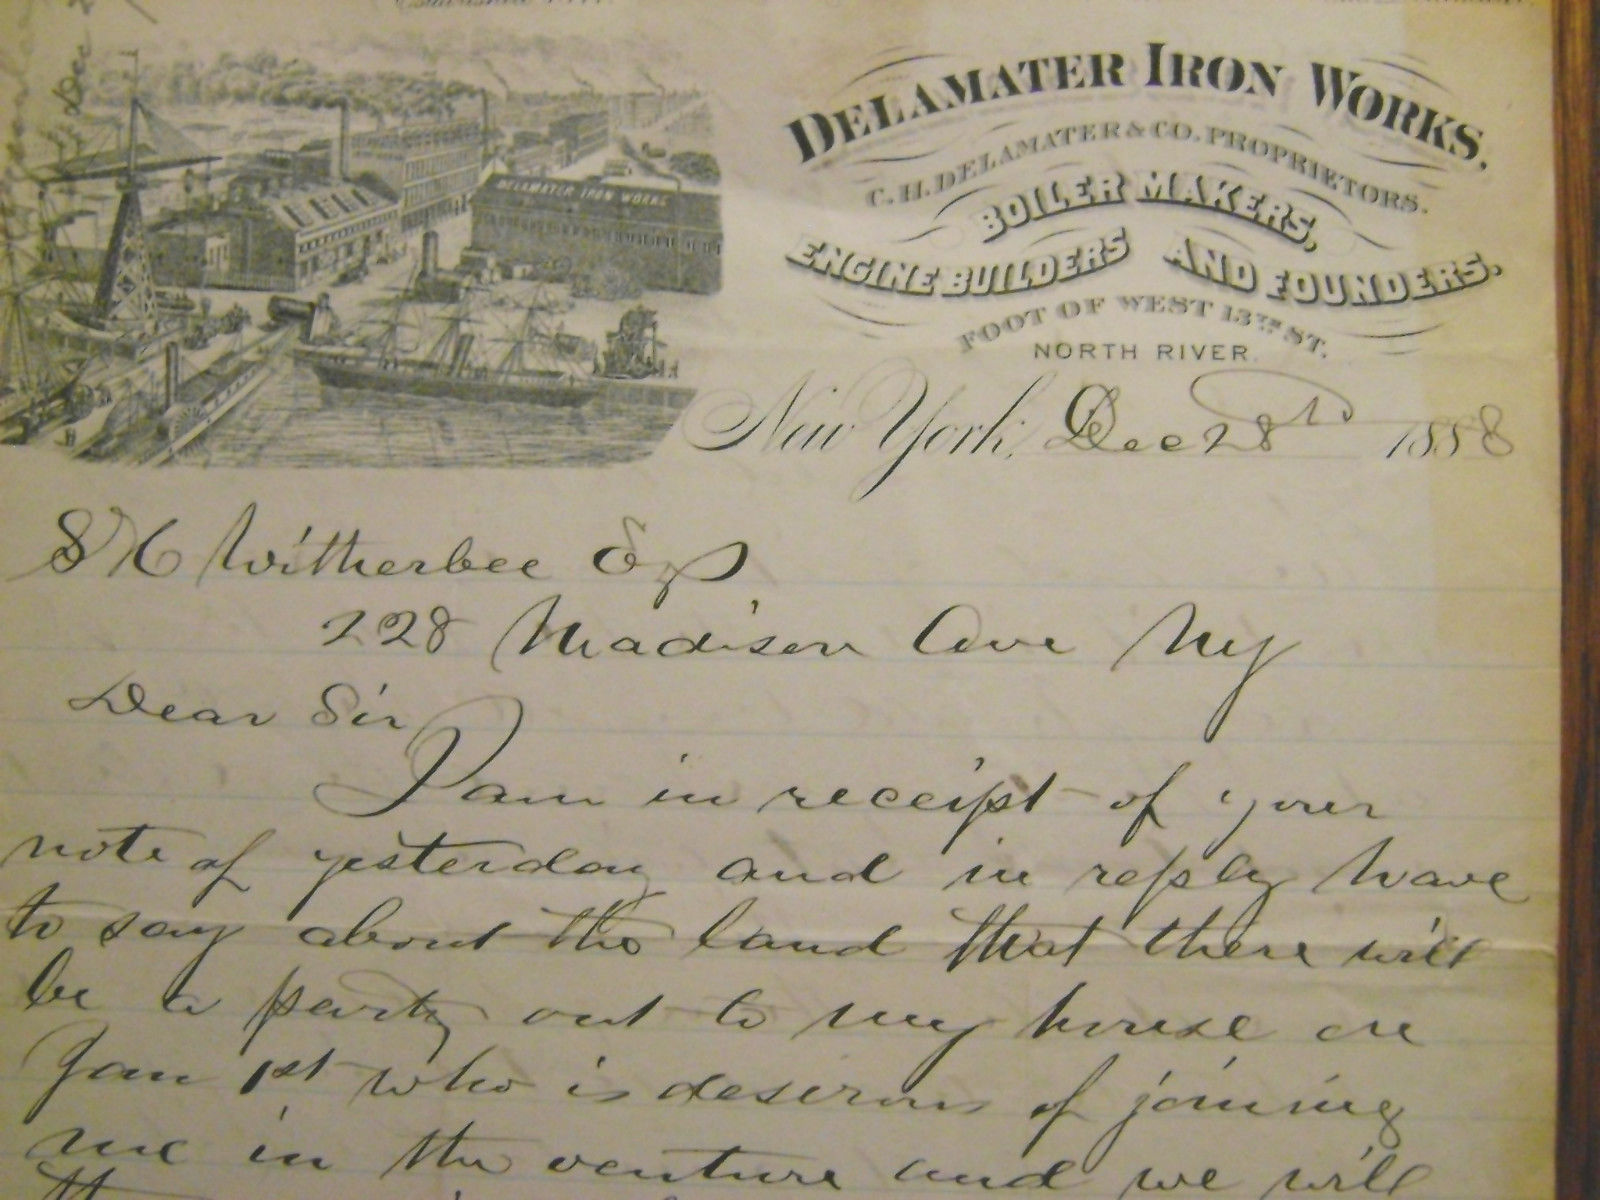 DELAMATER IRON WORKS.
C. H. DELAMATER & CO. PROPRIETORS.
BOILER MAKERS,
ENGINE BUILDERS AND FOUNDERS.
FOOT OF WEST 13TH ST.
NORTH RIVER.
DELAMATER IRON WORKS
New York, Dec 28th 1888
S H Witherbee Esq
228 Madison Ave NY
Dear Sir
I am in receipt of your
note of yesterday and in reply have
to say about the land that there will
be a party out to my house on
Jan 1st who is desirous of joining
me in the venture and we will